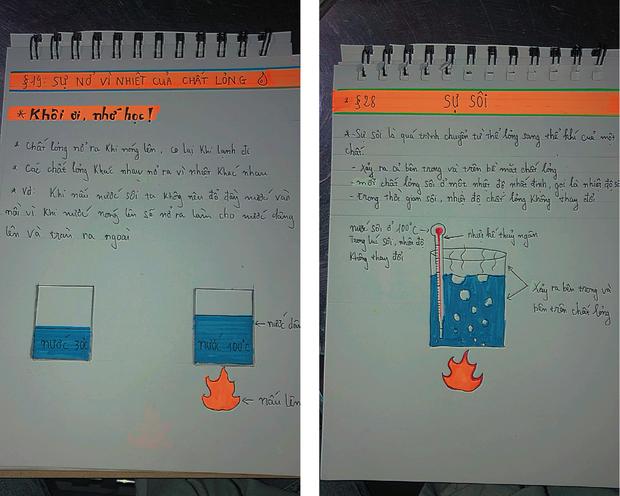 §19: SỰ NỞ VÌ NHIỆT CỦA CHẤT LỎNG
* Khôi ơi, nhớ học!
* Chất lỏng nở ra khi nóng lên, co lại khi lạnh đi
* Các chất lỏng khác nhau nở ra vì nhiệt khác nhau
* Vd: Khi nấu nước sôi ta không nên đổ đầy nước vào
nồi vì khi nước nóng lên sẽ nở ra làm cho nước dâng
lên và tràn ra ngoài
nước 30°C
nước 100°C
nước dâ
nấu lên
§28 SỰ SÔI
* Sự sôi là quá trình chuyển từ thể lỏng sang thể khí của một
chất.
- Xảy ra cả bên trong và trên bề mặt chất lỏng
- mỗi chất lỏng sôi ở một nhiệt độ nhất định, gọi là nhiệt độ sô
- Trong thời gian sôi, nhiệt độ chất lỏng không thay đổi
nước sôi ở 100°C
Trong lúc sôi, nhiệt độ
không thay đổi
nhiệt kế thuỷ ngân
Xảy ra bên trong và
bên trên chất lỏng